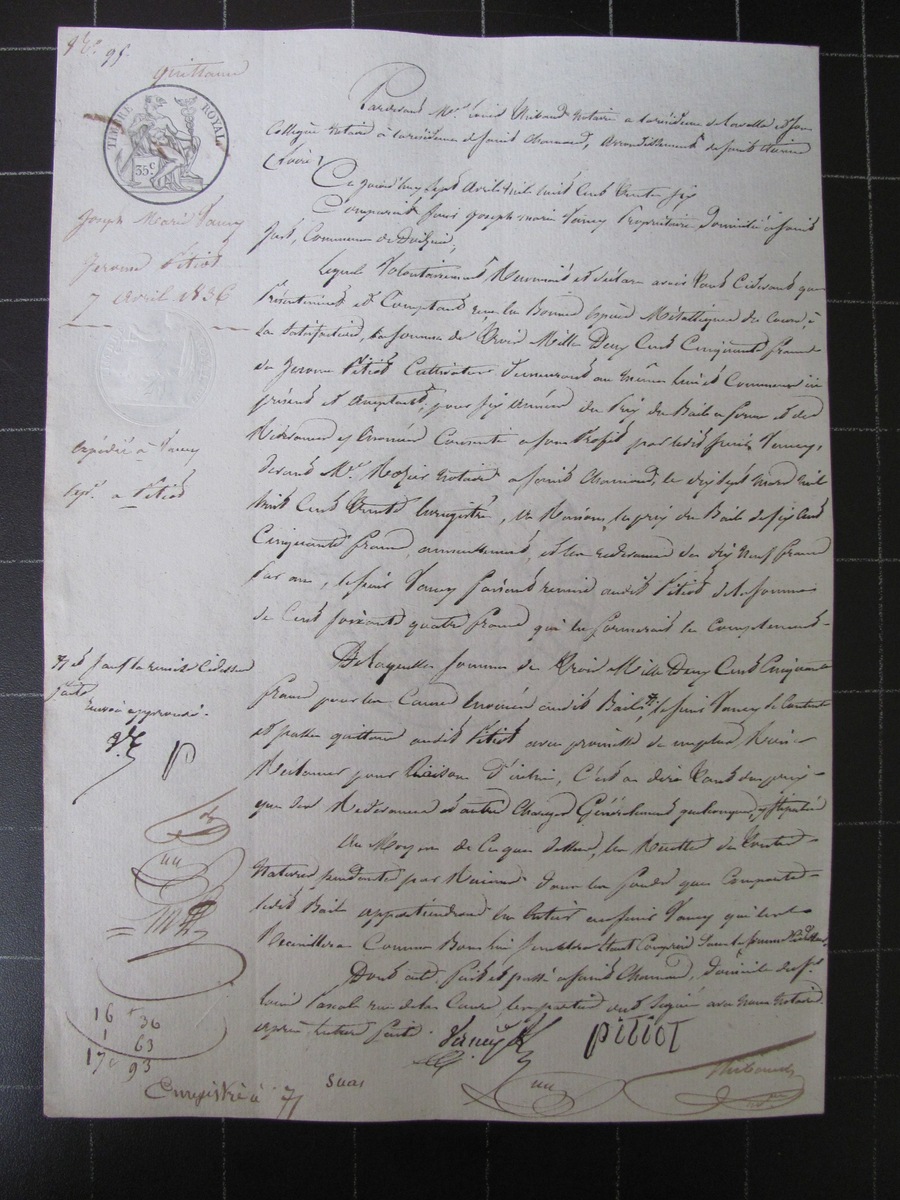 95
quittance
TIMBRE ROYAL
35 c
Pardevant Me Louis Thibaud Notaire a la résidence de Lavalla et son
Collègue Notaire à la résidence de Saint Chamond, arrondissement de Saint Etienne
(Loire)
Ce jourd'huy sept avril mil huit cent trente six
Comparait sieur Joseph Marie Verney Propriétaire, Domicilié à Saint
Just, Commune de Doizieu,
Lequel Volontairement Reconnait et déclare avoir reçu
présentement et Comptant en bonnes Espèces Métalliques de Cours, à
sa satisfaction, la somme de Trois Mille Deux Cent Cinquante francs
de Jerome Pitiot Cultivateur demeurant au même lieu et Commune ici
présent et acceptant, pour six années du Prix du Bail a ferme et des
Redevances y énoncées Consenti a son Profit par ledit sieur Verney,
devant Me Notaire a Saint Chamond, le dix sept mars mil
huit Cent trente Enregistré, à Raison, le prix du Bail de six Cent
Cinquante francs, annuellement, et les redevances de dix neuf francs
Par an, le sieur Verney faisant remise audit Pitiot de la somme
de Cent soixante quatre francs qui en formerait le Complément.
De laquelle somme de Trois Mille Deux Cent Cinquante
francs pour les Causes énoncées audit Bail, le sieur Verney se Contente
et passe quittance audit Pitiot avec promesse de ne plus Rien
Réclamer pour Raison d'icelui, C'est a dire tant du prix
que des Redevances et autres Charges Généralement quelconques y stipulées
Au Moyen de Ce que dessus, les Récoltes de toutes
Natures pendantes par Racines dans les fonds que Comporte
ledit Bail appartiendront en entier au sieur Verney qui les
Recueillera Comme Bon lui semblera
Dont acte fait et passé a Saint Chamond, Domicile du sr
Louis rue de la Caure, les parties ont signé avec nous Notaires
après lecture faite.
Joseph Marie Verney
Jerome Pitiot
7 Avril 1836
expédié à Verney
a Pitiot
et sauf la remise Cidessus
faite
Renvoi approuvé.
P
16 36
1 63
17 93
Verney
PITIOT
Thibaud
Enregistré à